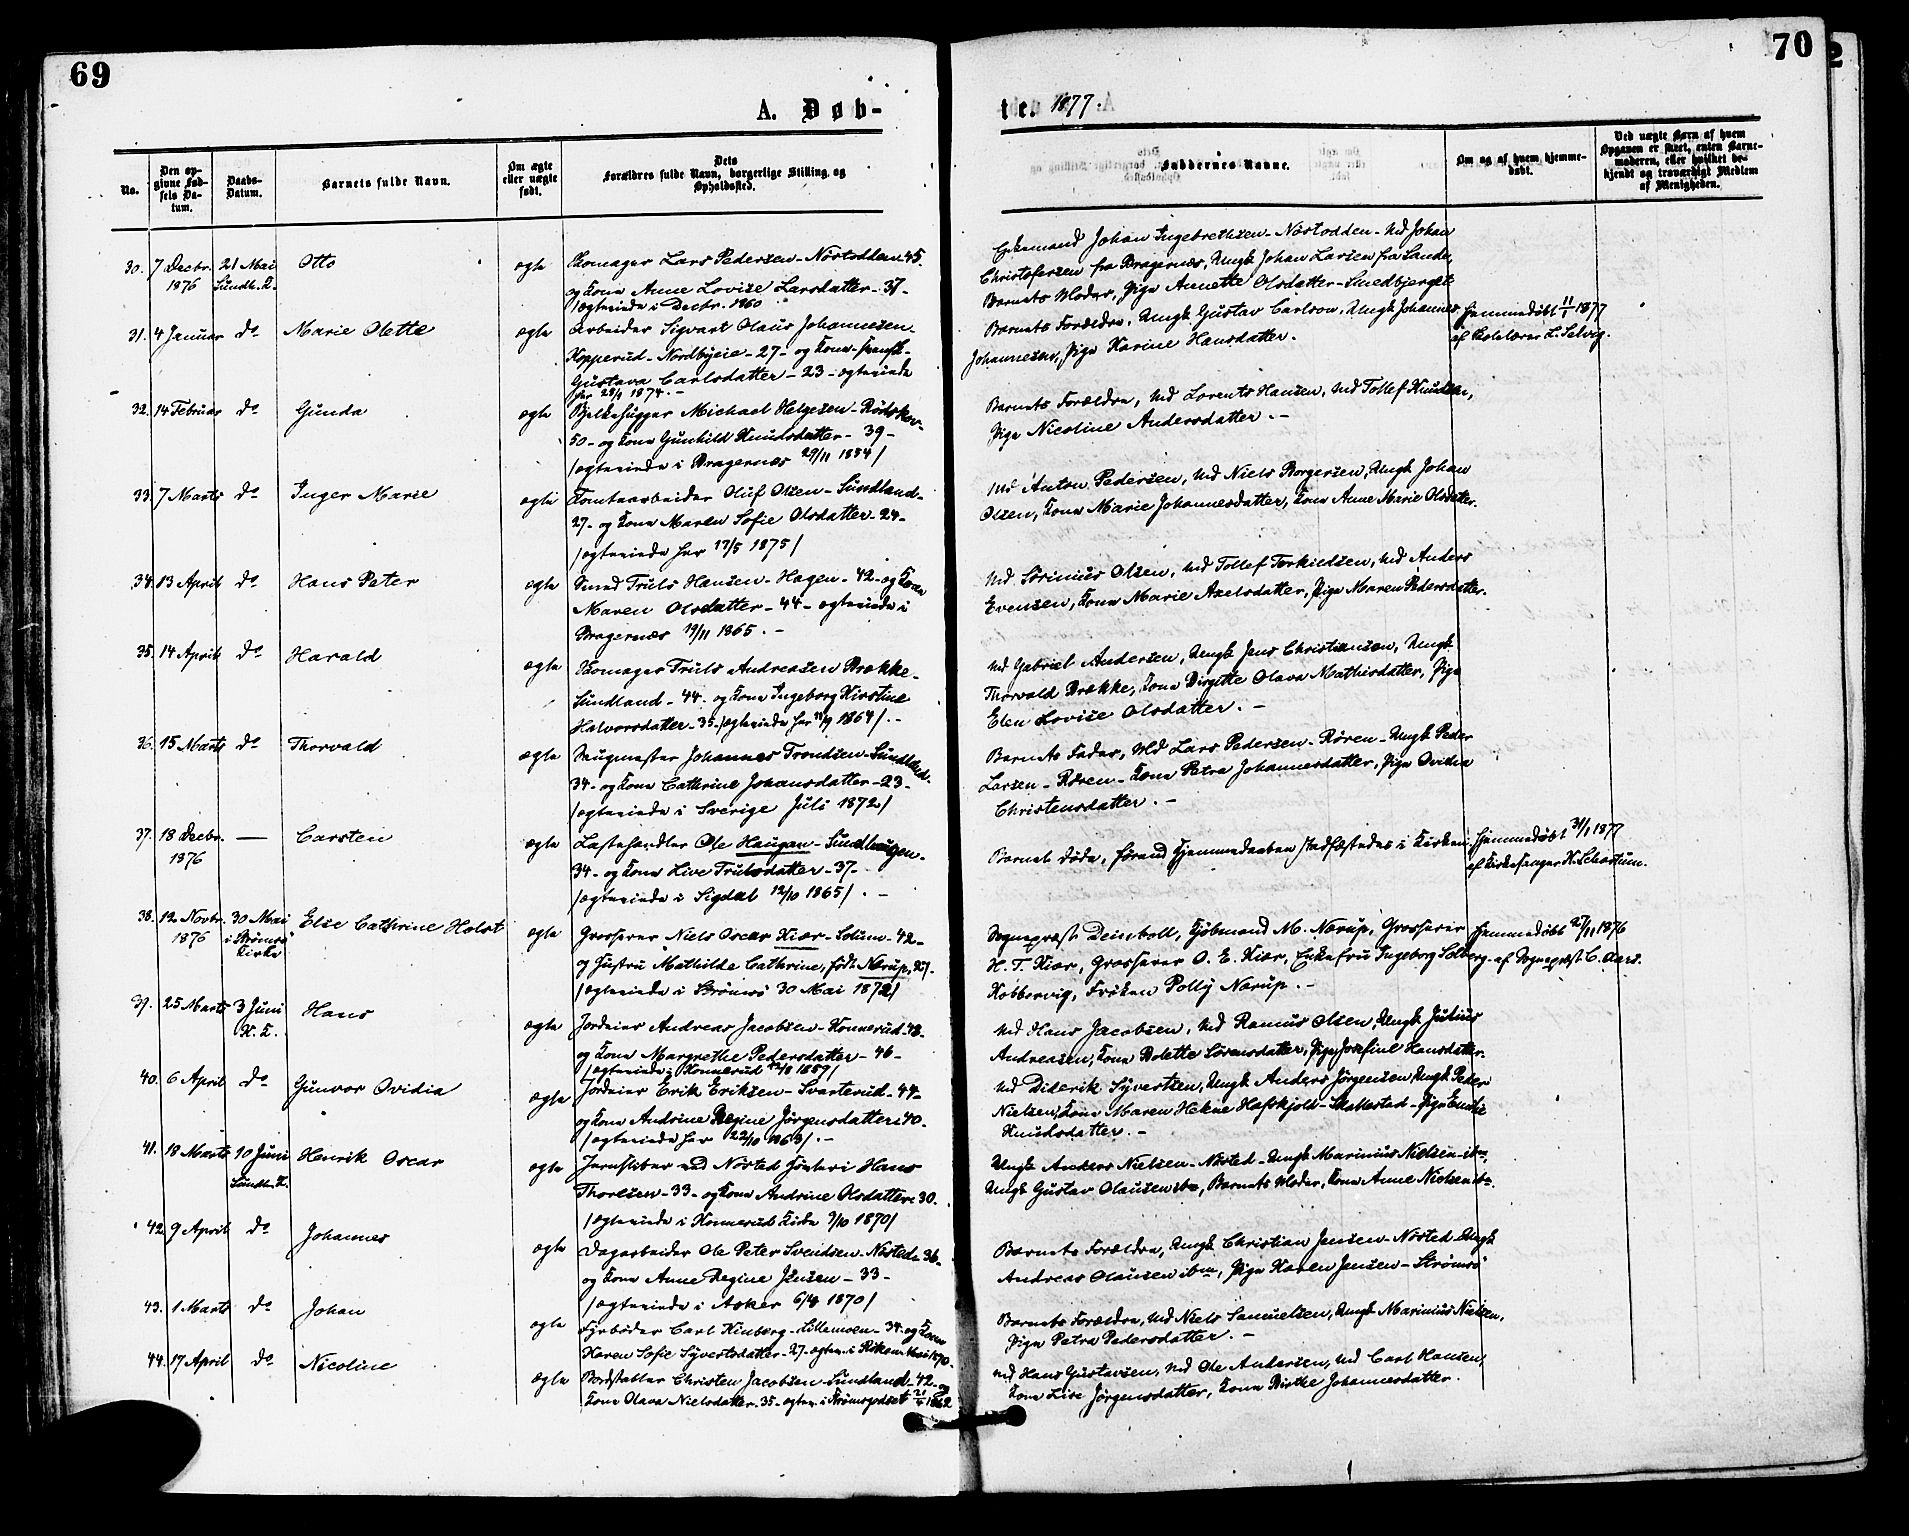 69
70
A. Døb-
te. 1877.
No.
Den opgivne Fødsels Datum.
Daabs-Datum.
Barnets fulde Navn.
Om ægte eller uægte født.
Dets Forældres fulde Navn, borgerlige Stilling og Opholdssted.
Faddernes Navne.
Om og af hvem hjemmedøbt.
Ved uægte Barn af hvem Opgaven er skeet, enten Barnemoderen, eller hvilket bekjendt og troværdigt Medlem af Menigheden.
30. 7 Decbr. 1876 21 Mai Sundh. K. Otto ægte
Skomager Lars Pedersen - Nöstodden 45.
og Kone Anne Lovise Larsdatter - 37 -
/ægteviede i Decbr. 1860
Johan Ingebrethsen - Nöstodden - Md Johan
Christofersen fra Bragernæs, Ungk. Johan Larsen fra Sande,
Barnets Moder, Pige Annette Olsdatter - Smedbjerget
31. 4 Januar do Marie Olette ægte
Arbeider Sigvart Olaus Johannesen
Kopperud - Nordbyeie - 27 - og Kone
Gustava Carlsdatter - 23 - ægteviede
her 28/1 1874. -
Barnets Forældre, Ungk. Gustav Carlson, Ungk Johannes
Johannesen, Pige Karine Hansdatter.
Hjemmedøbt 11/1 1877
af Skolelærer L. Selvig.
32. 14 Februar do Gunda ægte
Bjelkehugger Michael Helgesen - Rödskov -
50 - og Kone Gunhild Knudsdatter - 39 -
/ægteviede i Bragernæs 29/11 1854/
Barnets Forældre, Md Lorents Hansen, Md Tollef Knudsen,
Pige Nicoline Andersdatter. -
33. 7 Marts do Inger Marie ægte
Tomtearbeider Oluf Olsen - Sundland -
27 - og Kone Maren Sofie Olsdatter - 24 -
/ægteviede her 17/5 1875/
Md Anton Pedersen, Md Niels Borgersen, Ungk Johan
Olsen, Kone Marie Johannesdatter, Kone Anne Marie Olsdatter.
34. 13 April do Hans Peter ægte
Smed Truls Hansen - Hagen - 42 - og Kone
Maren Olsdatter - 44 - ægteviede i
Bragernæs 19/11 1865. -
Md Sörinius Olsen, Md Tollef Torkildsen, Md Anders
Evensen, Kone Marie Axelsdatter, Pige Maren Pedersdatter.
35. 14 April do Harald ægte
Skomager Truls Andreasen Brække -
Sundland - 44. og Kone Ingeborg Kirstine
Halvorsdatter - 35 - /ægteviede her 11/9 1864/. -
Md Gabriel Andersen, Ungk Jens Christiansen, Ungk
Thorvald Brække, Kone Birgitte Olava Mathisdatter, Pige
Elen Lovise Olsdatter. -
36. 15 Marts do Thorvald ægte
Saugmester Johannes Trondsen - Sundland.
34 - og Kone Cathrine Johansdatter - 23 -
/ægteviede i Sverige Juli 1872/
Barnets Fader, Md Lars Pedersen - Røren - Ungk Peder
Larsen - Røren - Kone Petra Johannesdatter, Pige Ovidia
Christensdatter. -
37. 18 Decbr. 1876 — Carsten ægte
Lastehandler Ole Haugan - Sundhaugen -
34 - og Kone Live Trulsdatter - 37 -
/ægteviede i Sigdal 12/10 1865/. -
Barnet døde, forend Hjemmedaaben stadfæstedes i Kirken.
Hjemmedøbt 31/1 1877
af Kirkesanger H. Schartum.
38. 12 Novbr. 1876 30 Mai i Strömsö Kirke Else Cathrine Holst ægte
Grosserer Niels Oscar Kiær - Solum - 42 -
og Hustru Mathilde Cathrine, født Nærup, 27 -
/ægteviede i Strömsö 30 Mai 1872/
Sognepræst Deinboll, Kjöbmand M. Nærup, Grosserer
H. T. Kiær, Grosserer O. E. Kiær, Enkefru Ingeborg Solberg -
Kobbervig, Frøken Polly Nærup. -
Hjemmedøbt 27/11 1876
af Sognepræst C. Aars.
39. 25 Marts 3 Juni K. K. Hans ægte
Jordeier Andreas Jacobsen - Konnerud 48.
og Kone Margrethe Pedersdatter - 46 -
Md Hans Jacobsen, Md Ramus Olsen, Ungk Julius
Andreasen, Kone Bolette Sörensdatter, Pige Josefine Hansdatter.
40. 6 April do Gunvor Ovidia ægte
Jordeier Erik Eriksen - Svarterud - 44 -
og Kone Andrine Regine Jörgensdatter 40.
/ægteviede her 22/10 1863/. -
Md Diderik Syvertsen, Ungk Anders Jörgensen, Ungk Peder
Nielsen, Kone Maren Helene Hafskjold - Skallestad - Pige Emilie
Knudsdatter. -
41. 18 Marts 10 Juni Sundh. K. Henrik Oscar ægte
Jernsliber ved Nösted Jönteri Hans
Thoresen - 33 - og Kone Andrine Olsdatter 30.
/ægteviede i Konnerud Kirke 9/10 1870/
Ungk Anders Nielsen - Nösted - Ungk Marinius Nielsen - ibm,
Ungk Gustav Olausen ibm, Barnets Moder, Kone Anne Nielsen ibm.
42. 9 April do Johannes ægte
Dagarbeider Ole Peter Svendsen - Nösted - 36 -
og Kone Anne Regine Jensen - 33 -
/ægteviede i Asker 6/4 1870/
Barnets Forældre, Ungk Christian Jensen - Nösted - Ungk
Andreas Olausen ibm, Pige Karen Jensen - Strömsö
43. 1 Marts do Johan ægte
Fyrböder Carl Kinberg - Lillemoen - 34. og Kone
Karen Sofie Syvertsdatter - 27 - ægtev. i Röken Mai 1870.
Barnets Forældre, Md Niels Samuelsen, Ungk Marinius Nielsen,
Pige Petra Pedersdatter. -
44. 17 April do Nicoline ægte
Bordstabler Christen Jacobsen - Sundland - 42 - og
Kone Olava Nielsdatter - 35 - ægtev. i Strömsgodset 21/4 1862.
Md Hans Gustavsen, Md Ole Andersen, Md Carl Hansen,
Kone Lise Jörgensdatter, Kone Birthe Johannesdatter.